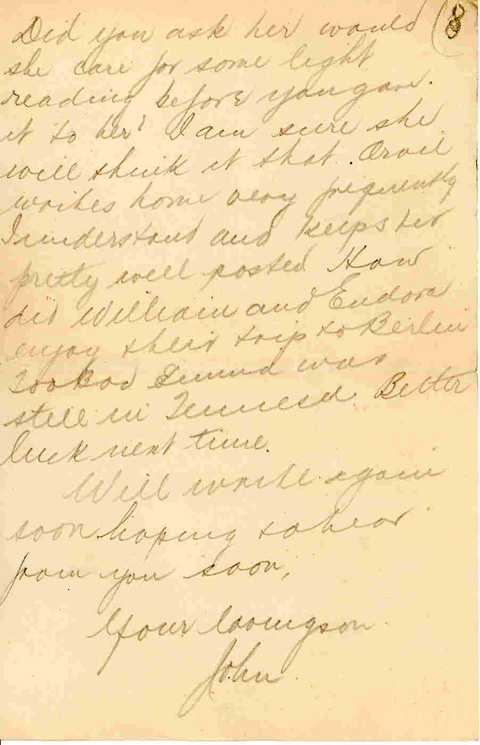 8
Did you ask her would
she care for some light
reading before you gave
it to her? I am sure she
will think it that. Orvil
writes home very frequently
I understand and keeps her
pretty well posted How
did William and Eudora
enjoy their trip to Berlin
Too bad was
still in Better
luck next time.
Will write again
soon hoping to hear
from you soon,
Your loving son
John